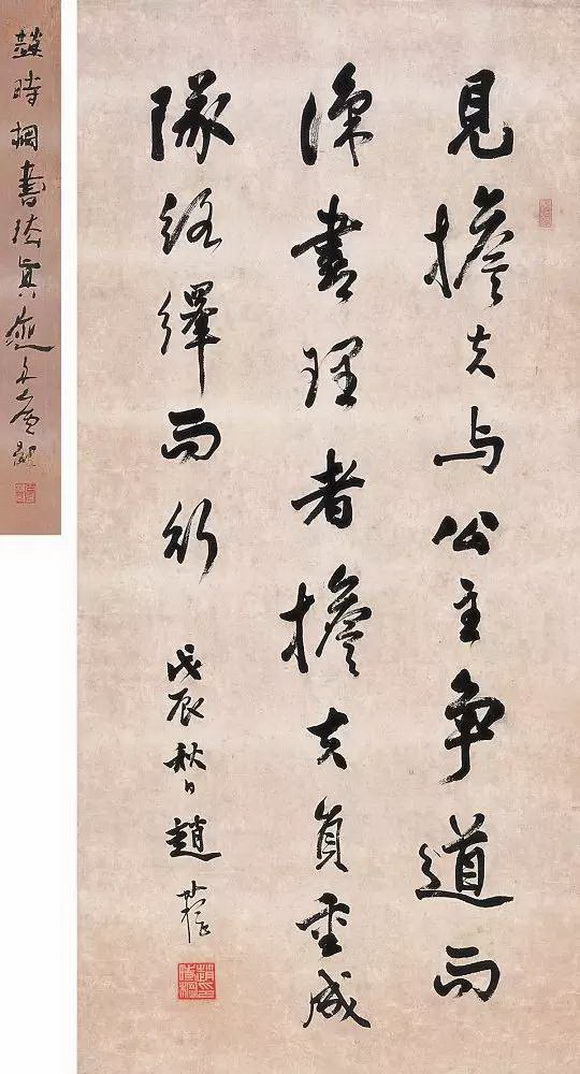 見擔夫与公主争道而
深書理者擔夫負重成
隊絡繹而行
戊辰秋日趙
趙時棡書法真